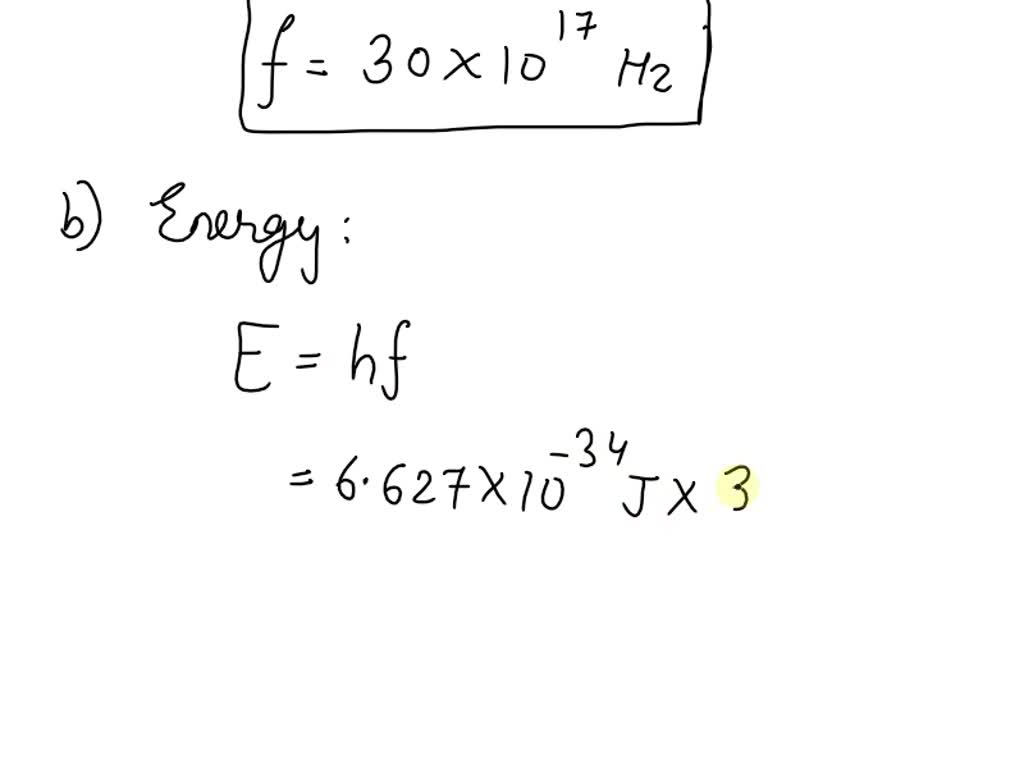 f = 30 × 10¹⁷ Hz
b) Energy:
E = hf
= 6.627 × 10⁻³⁴ J × 3